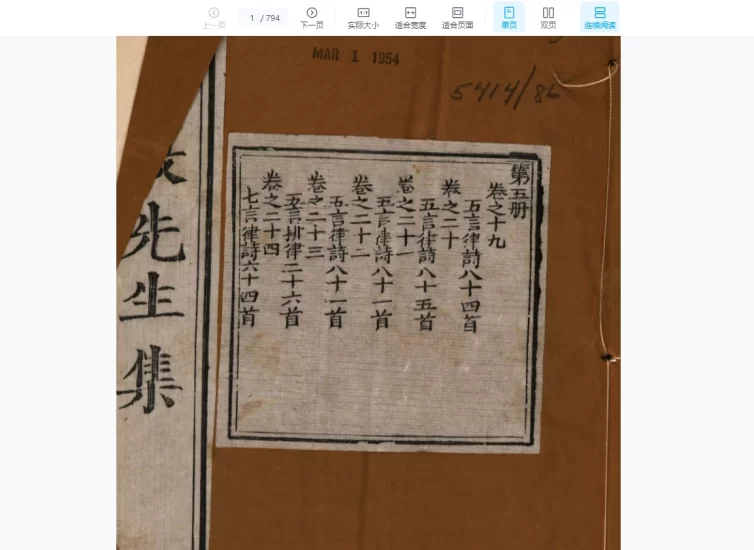 上一页
1 / 794
下一页
实际大小
适合宽度
适合页面
单页
双页
连续阅读
MAR 1 1954
5414/86
第五册
卷之十九
五言律詩八十四首
卷之二十
五言律詩八十五首
卷之二十一
五言律詩八十一首
卷之二十二
五言律詩八十一首
卷之二十三
五言排律二十六首
卷之二十四
七言律詩六十四首
先生集